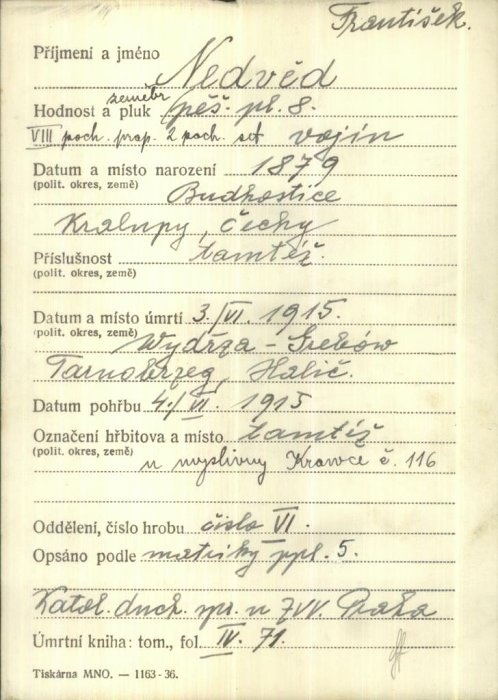 František.
Příjmení a jméno Nedvěd
zeměbr
Hodnost a pluk pěš. pl. 8.
VIII poch. prap. 2 poch. set vojín
Datum a místo narození 1879
(polit. okres, země) Budhostice
Kralupy, Čechy
Příslušnost tamtéž.
(polit. okres, země)
Datum a místo úmrtí 3./VI. 1915.
(polit. okres, země) Wydrza - Grebów
Tarnobrzeg, Halič.
Datum pohřbu 4./VI. 1915
Označení hřbitova a místo tamtéž
(polit. okres, země) u myslivny Krawce č. 116
Oddělení, číslo hrobu číslo VI.
Opsáno podle matriky ppl. 5.
Katol. duch. spr. u ZVV. Praha
Úmrtní kniha: tom., fol. IV. 71.
Tiskárna MNO. — 1163-36.